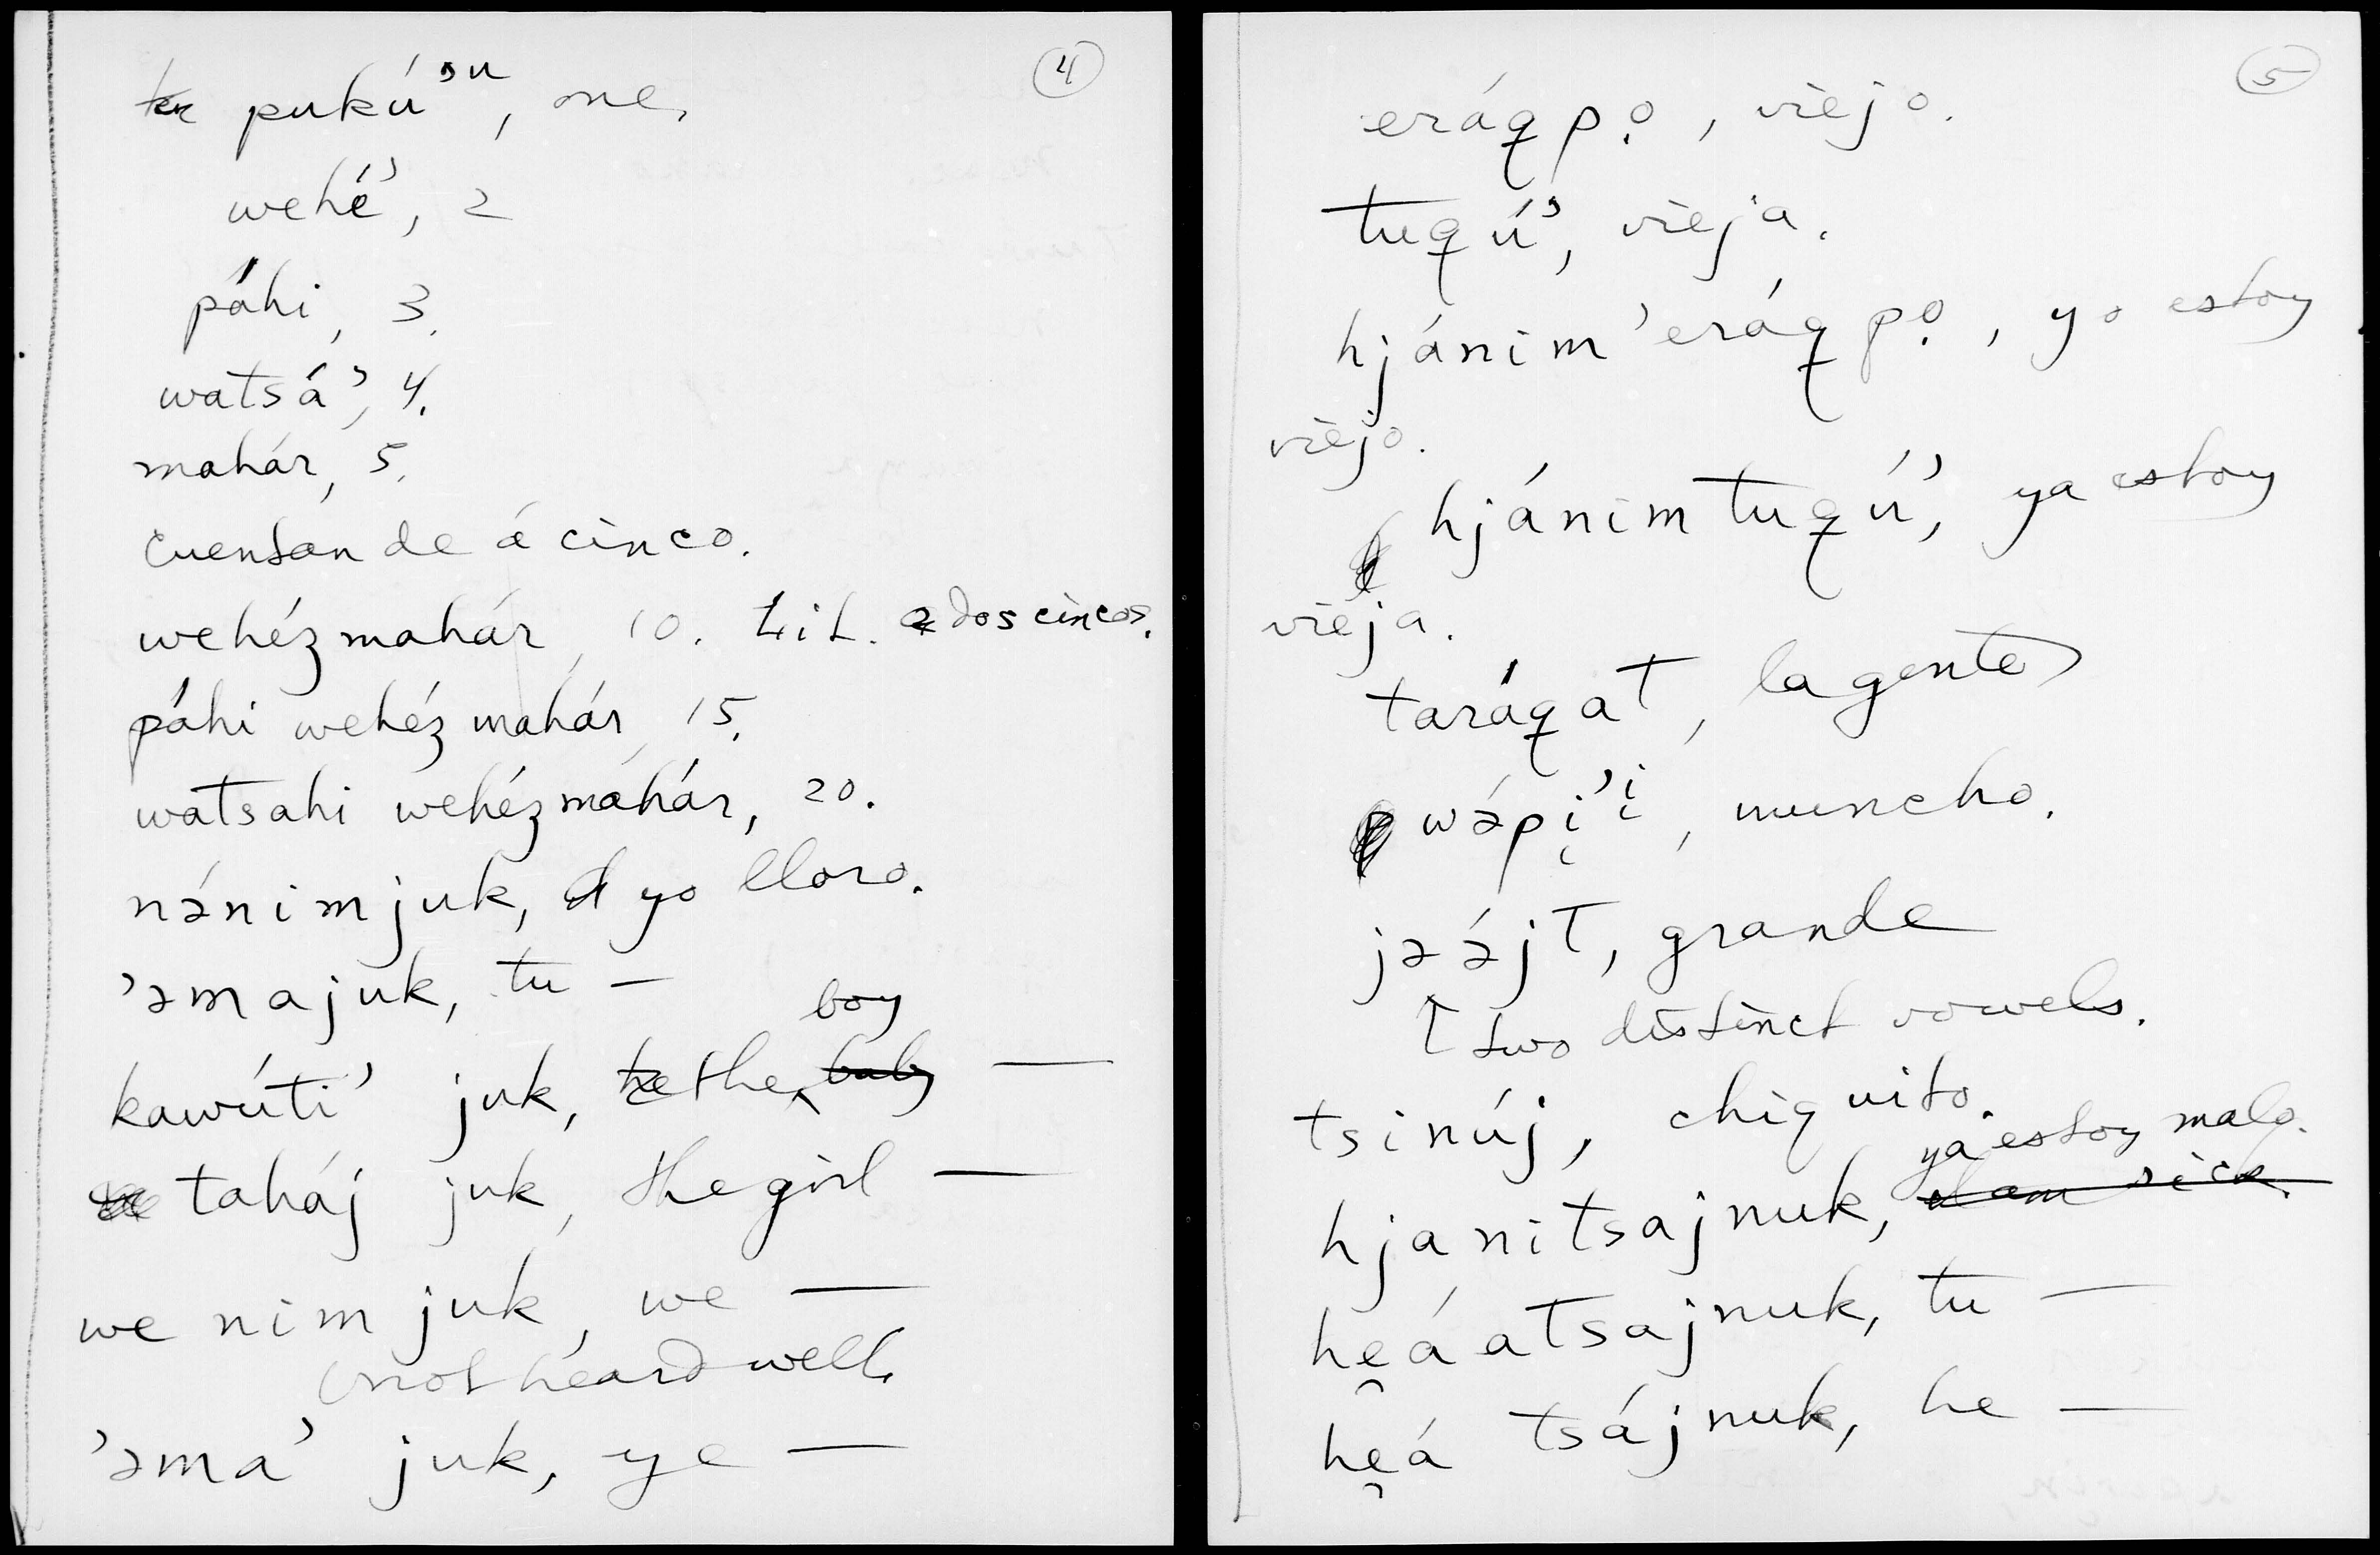 4
pukú’ᵘ, one.
wehé’, 2
páhi, 3.
watsá’, 4.
mahár, 5.
Cuentan de á cinco.
wehéʒmahár, 10. Lit. dos cincos.
páhi wehéʒmahár, 15.
watsahi wehéʒmáhár, 20.
nánimjuk, yo lloro.
’əmajuk, tu —
kawúti’ juk, the boy ~~baby~~ —
taháj juk, the girl —
we nim juk, we —
(not heard well.
’əma’ juk, ye —
5
eráq̣pọ, viejo.
tuqú’, vieja.
hjánim’eráqpọ, yo estoy
viejo.
hjánimtuqú’, ya estoy
vieja.
taráqat, la gente
wə́pị’ⁱ, muncho.
jəə́jt, grande
↑ two distinct vowels.
tsinúj, chiquito.
ya estoy malo.
hjanitsajnuk, ~~I am sick.~~
hęáatsajnuk, tu —
hęá tsájnuk, he —